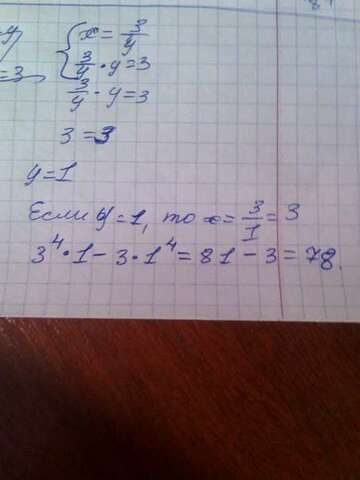 y
= 3
{ x = 3/y
3/y · y = 3
3/y · y = 3
3 = 3
y = 1
Если y = 1, то x = 3/1 = 3
3⁴ · 1 - 3 · 1⁴ = 81 - 3 = 78.